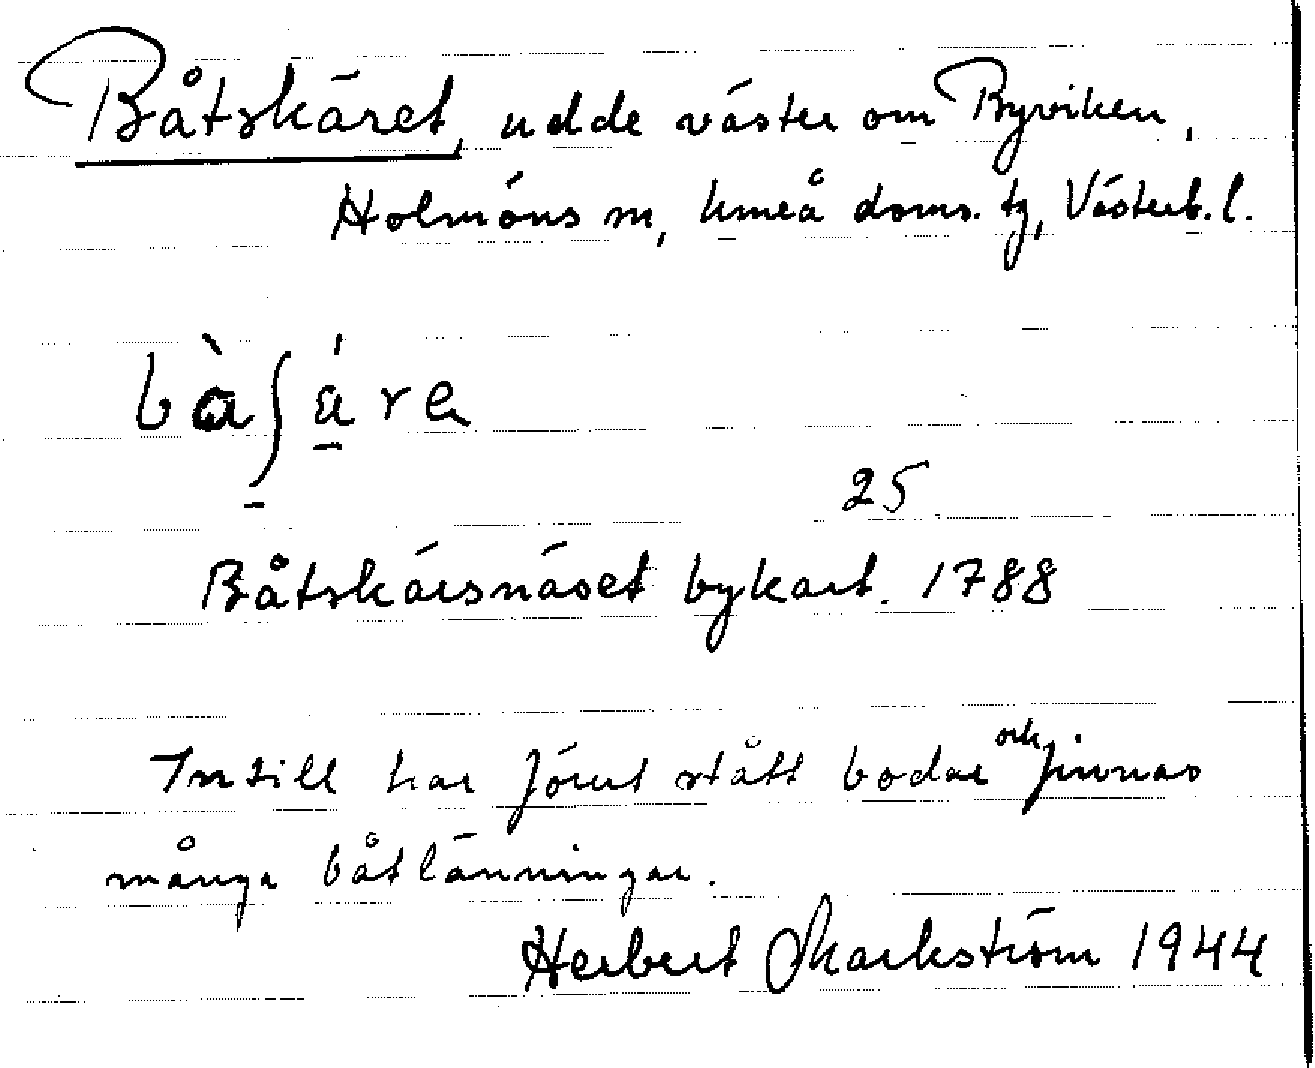 Båtskäret, udde väster om Byviken,
Holmöns sn, Umeå doms. tg, Västerb. l.
bàʃá̱re
25
Båtskärsnäset bykart. 1788
Intill har förut stått bodar och finnas
många båtlänningar.
Herbert Markström 1944